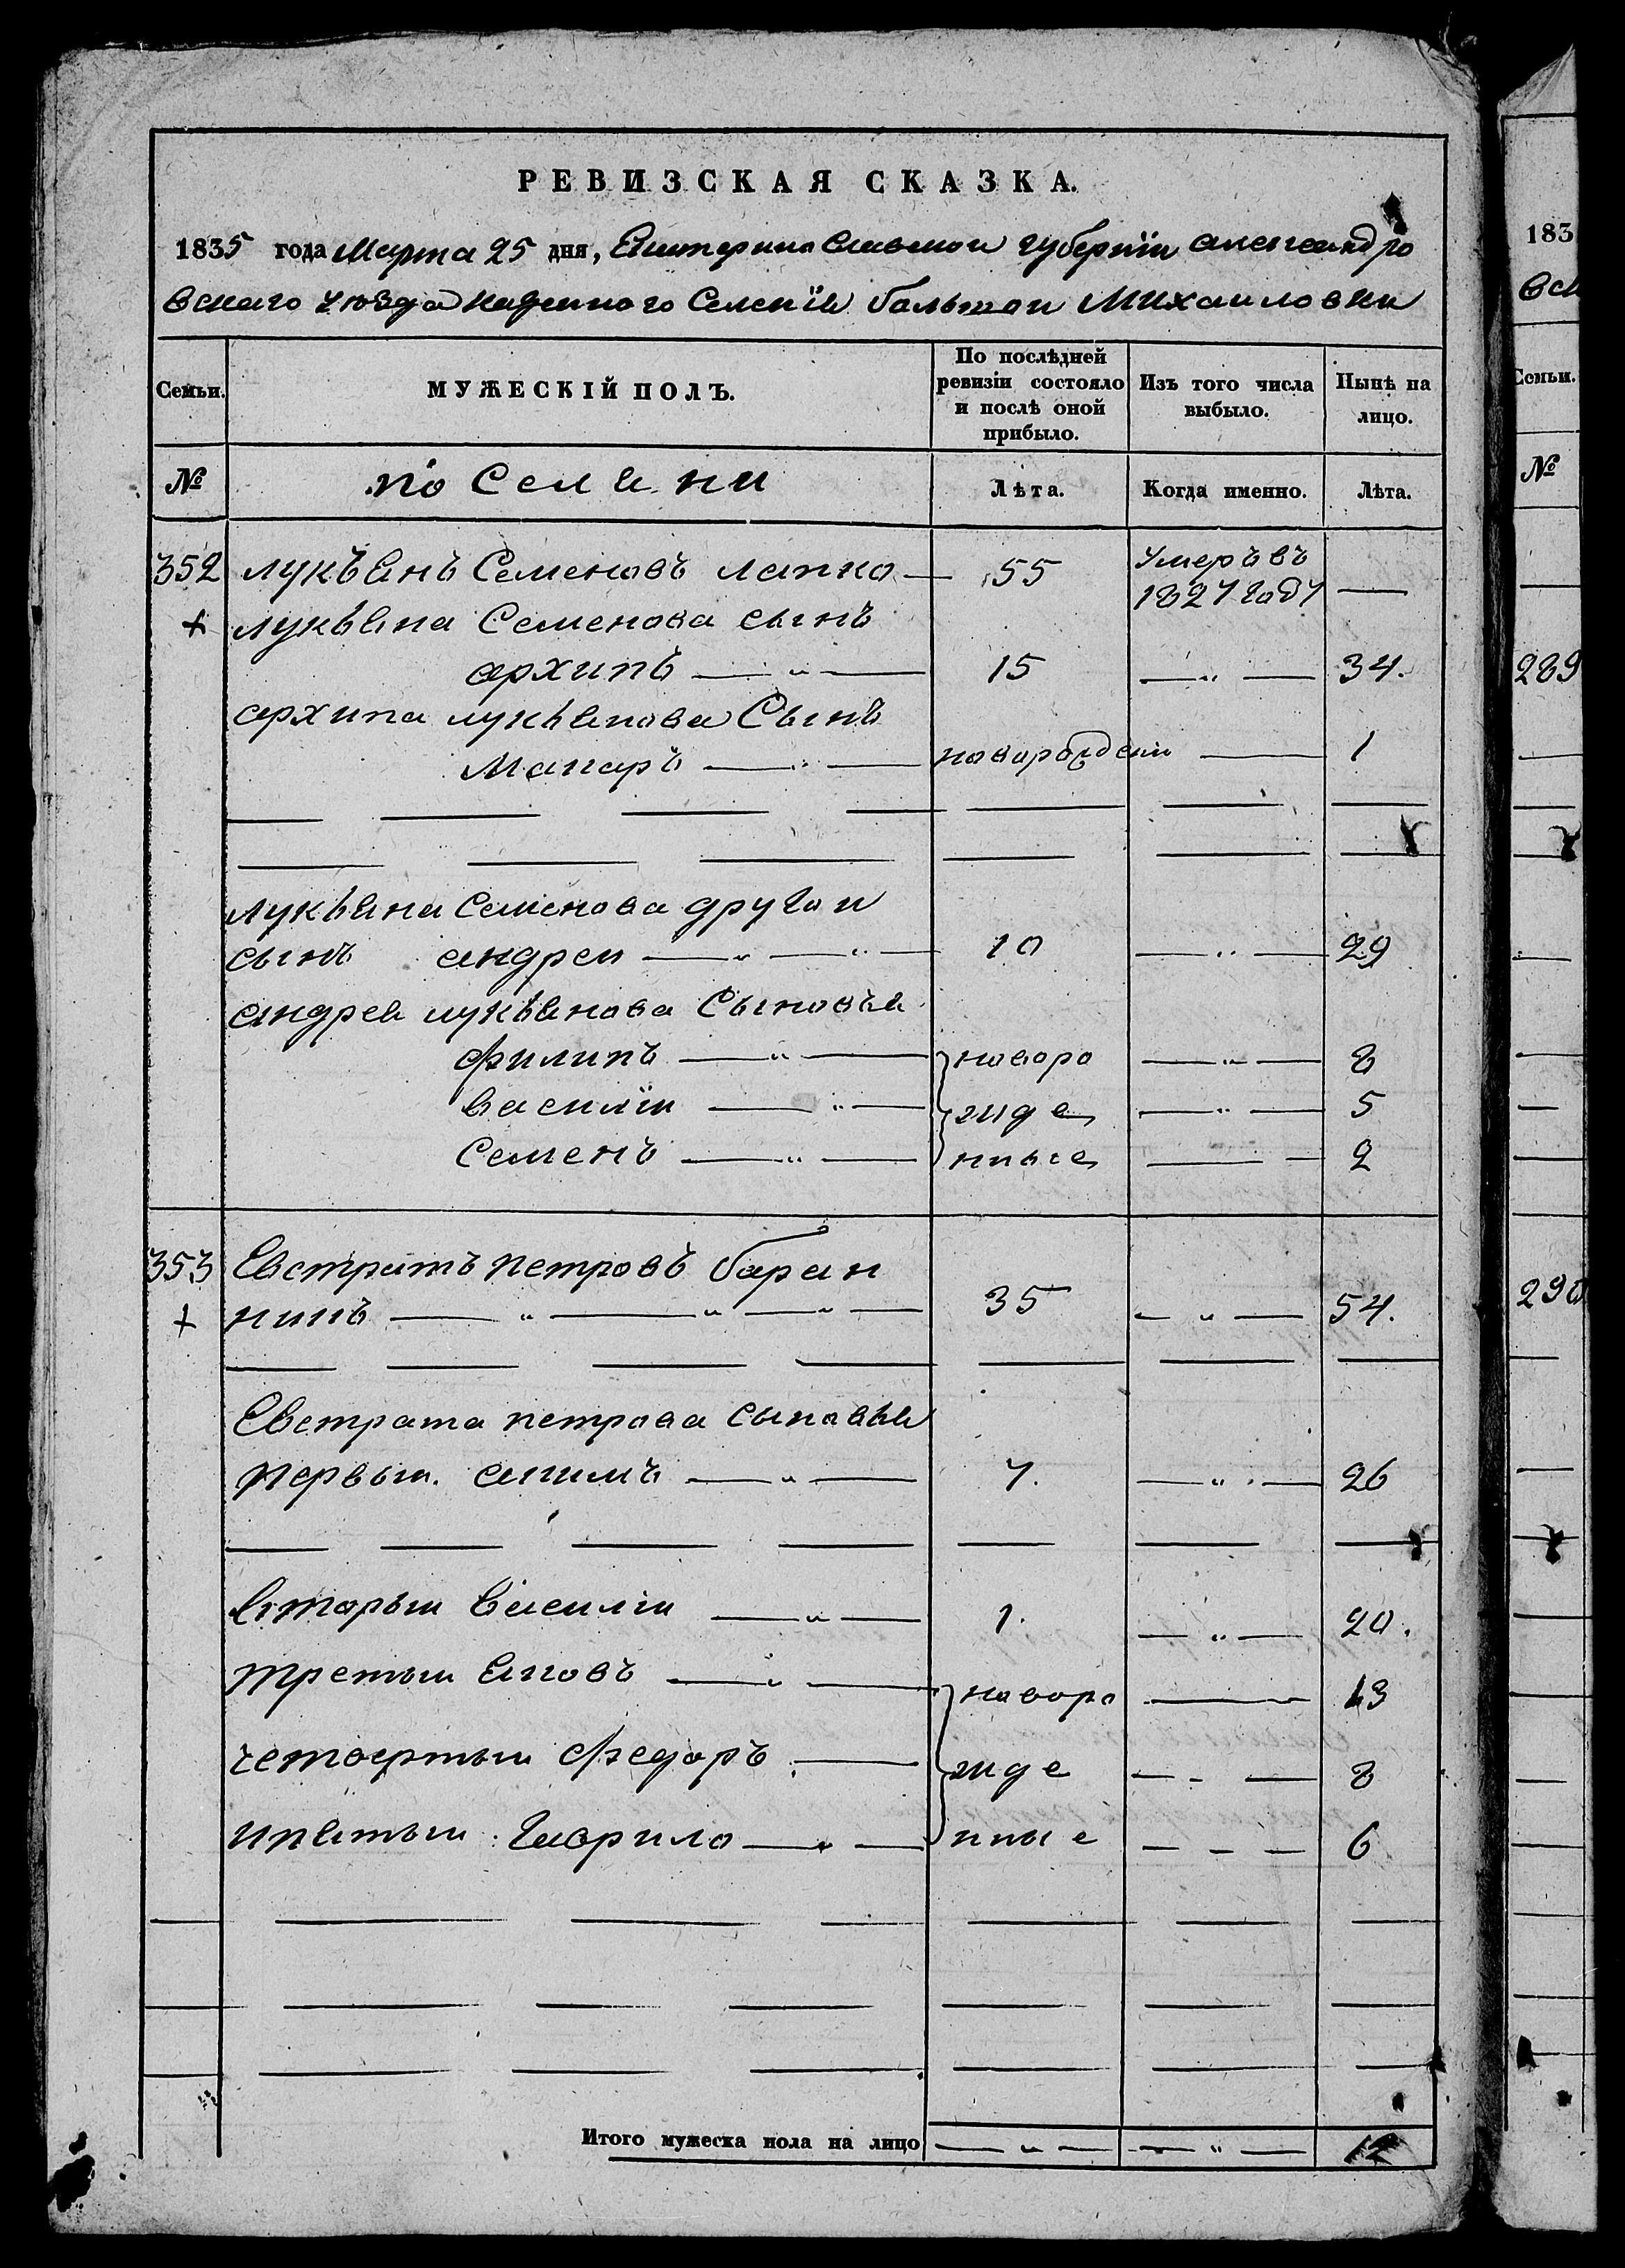 РЕВИЗСКАЯ СКАЗКА.
1835 года Марта 25 дня, Екатеринославской губернїи александро
вскаго уюзда казенного Селенїя большои Михаиловки
Семьи.
МУЖЕСКІЙ ПОЛЪ.
По послѣдней ревизіи состояло и послѣ оной прибыло.
Изъ того числа выбыло.
Нынѣ на лицо.
№
поселяни
Лѣта.
Когда именно.
Лѣта.
352 лукъянъ Семеновъ лапко — 55 Умеръ въ 1827 году —
+ лукъяна Семенова сынъ
архипъ — „ — 15 — „ — 34.
архипа лукъянова Сынъ
Макаръ — „ — новорожденни — 1
лукъяна Семенова другои
сынъ андреи — „ — „ — 10 — „ — 29
андрея лукъянова Сыновья
филипъ — „ — новоро — „ — 8
василїи — „ — жде — „ — 5
Семенъ — „ — нные — — 2
353 Евстратъ петровъ баран
+ никъ — „ — „ — „ — 35 — „ — 54.
Евстрата петрова сыновья
первыи. акимъ — „ — 7. — „ — 26
вторыи василїи — „ — 1. — „ — 20.
третыи яковъ — „ — новоро — 13
четвертыи федоръ — жде — - — 8
ипятыи гаврило — „ — нные — — — 6
Итого мужеска пола на лицо — „ — — „ — 12
183
вск
Семьи.
№
289
290